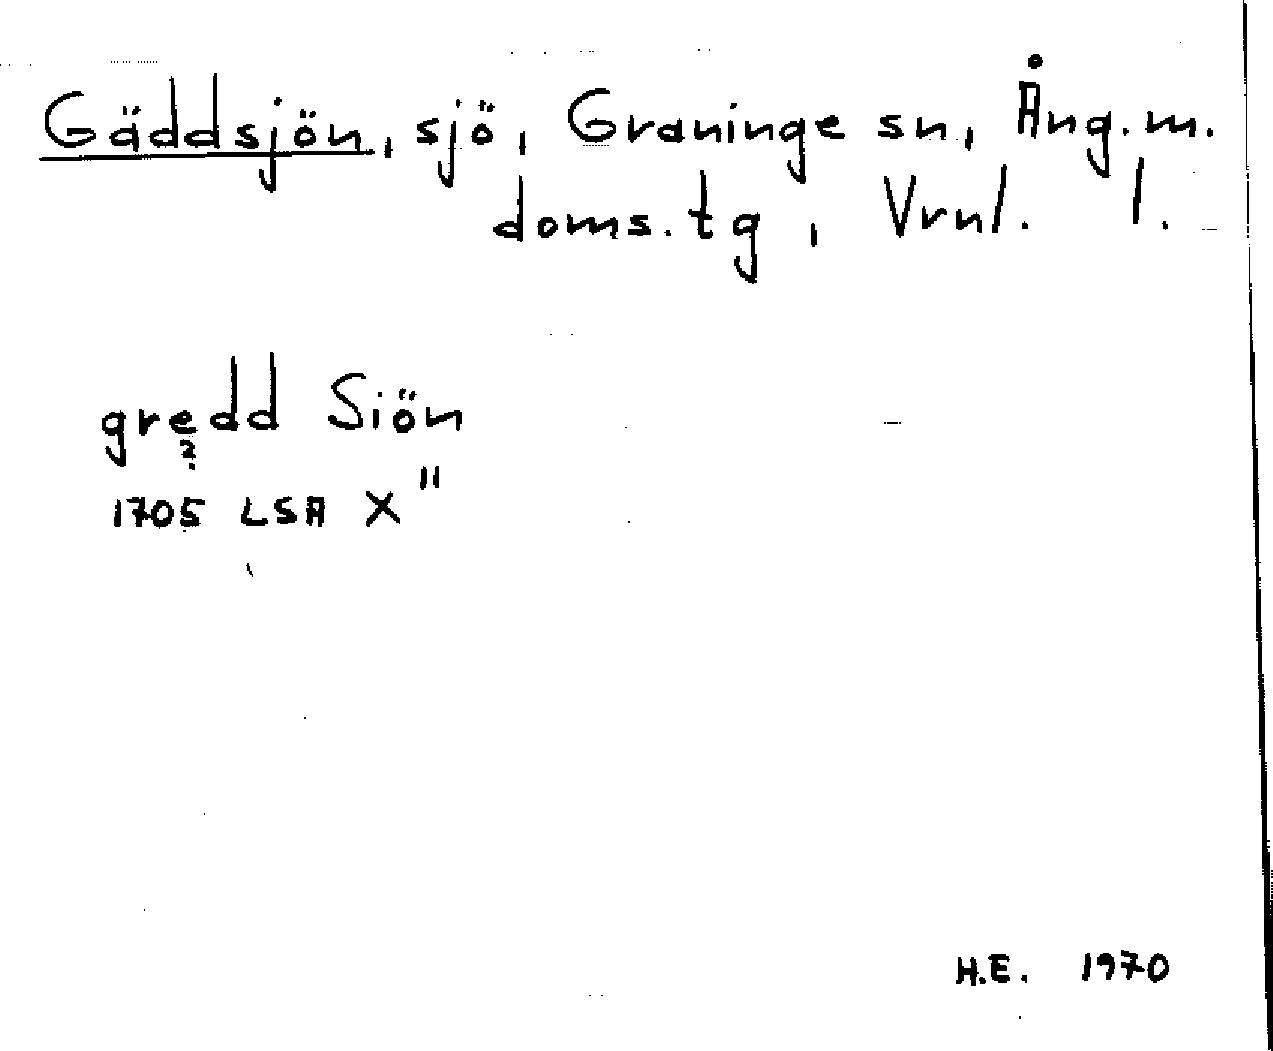 Gäddsjön, sjö, Graninge sn, Ång.m.
doms.tg, Vrnl. l.
gredd Siön
?
1705 LSA X"
H.E. 1970